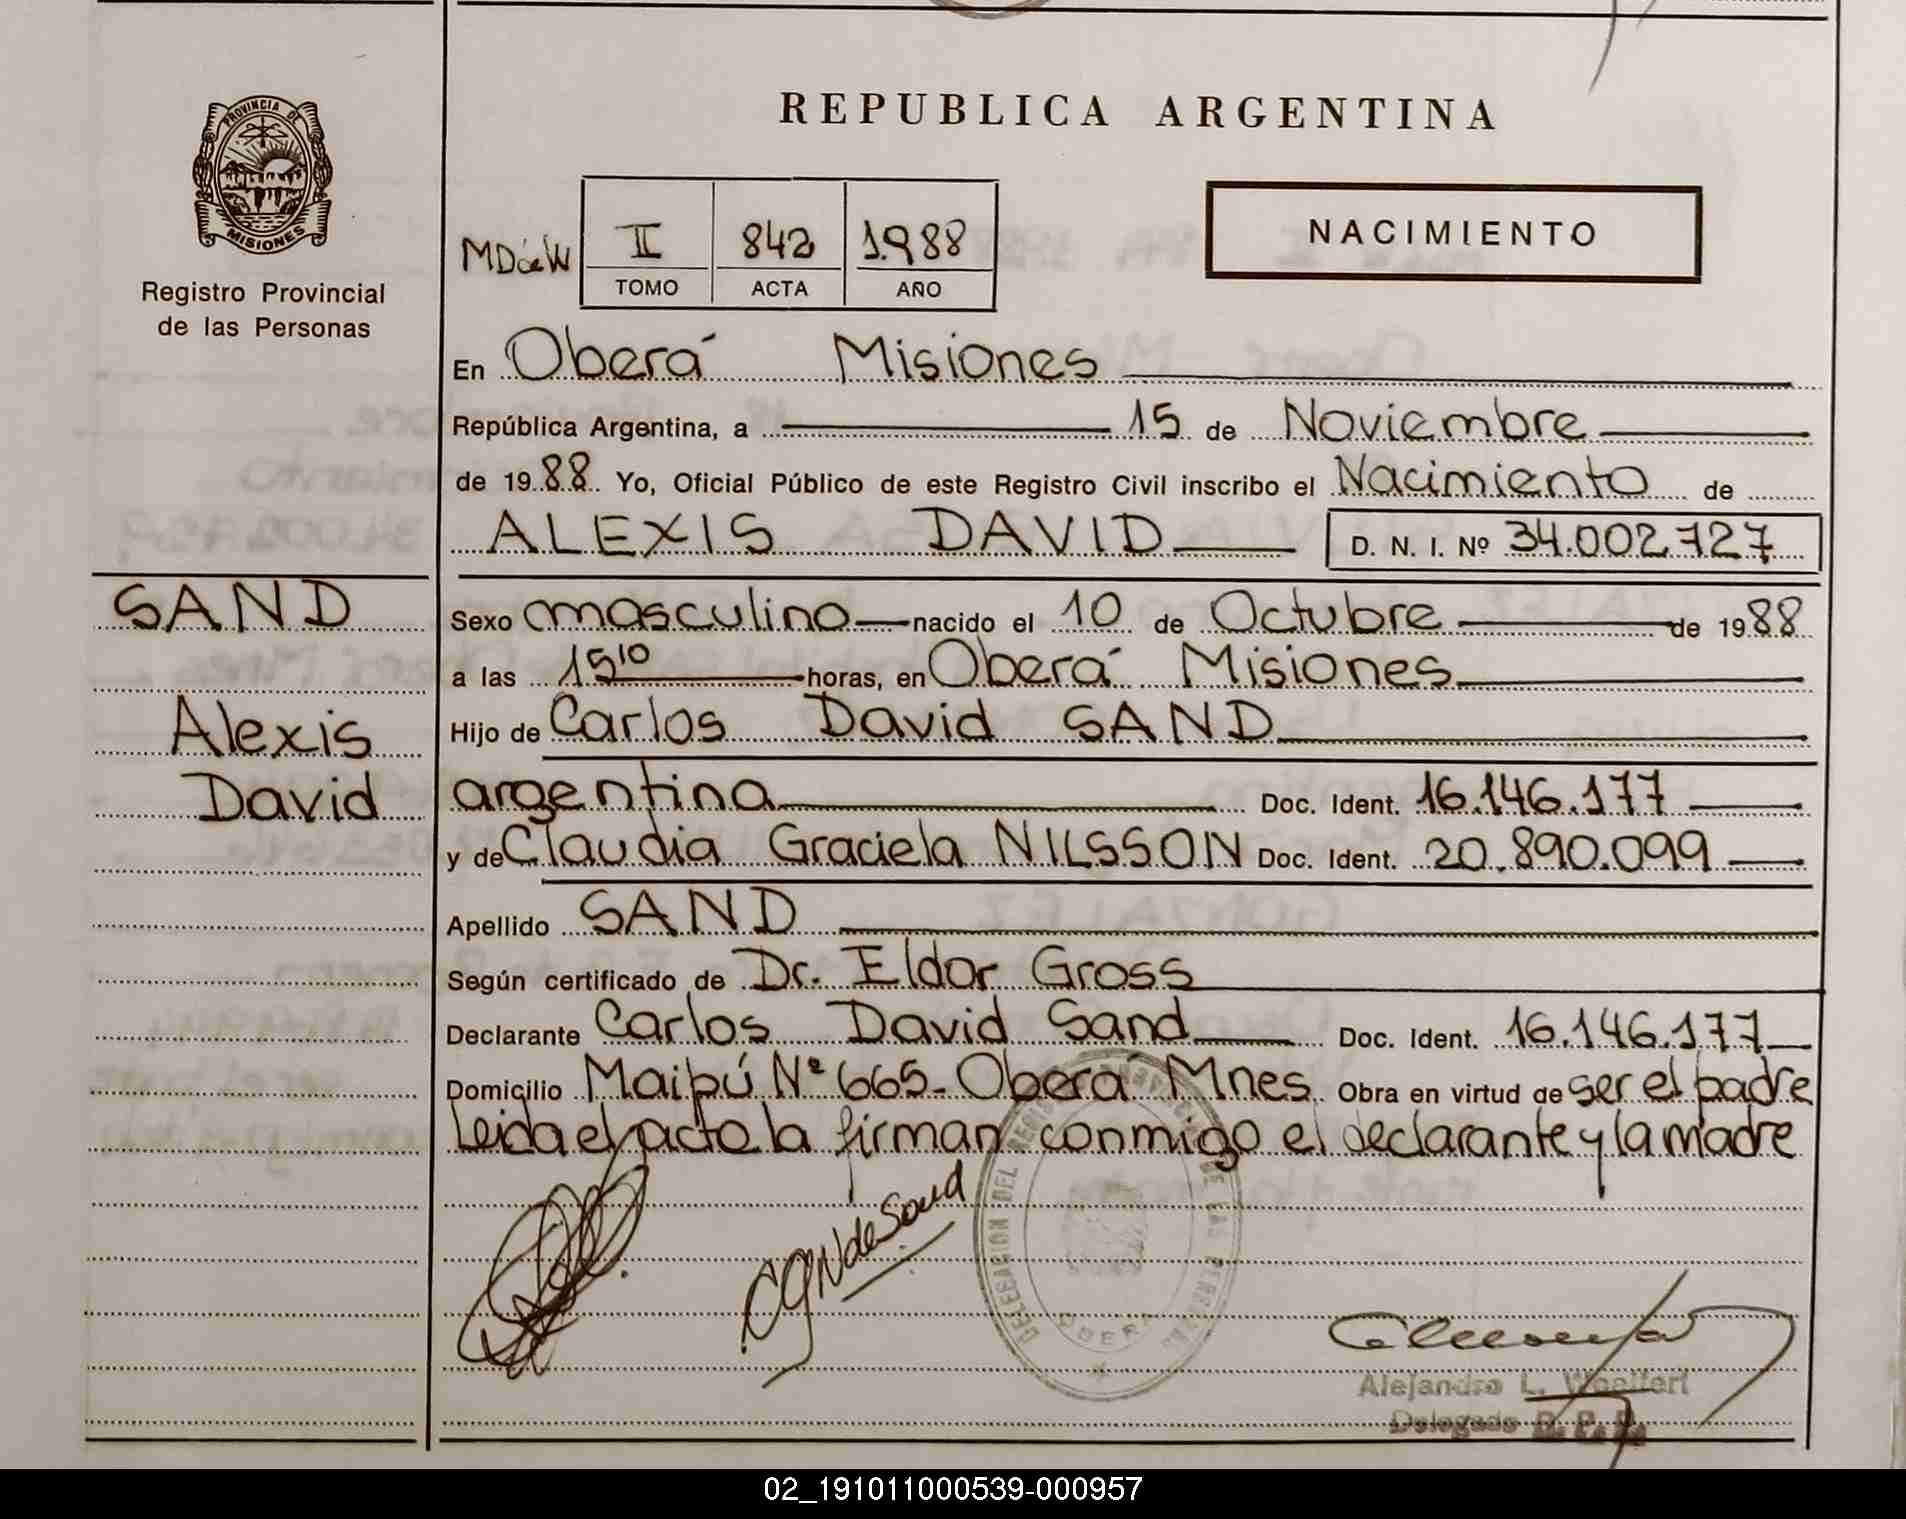 PROVINCIA DE
MISIONES
Registro Provincial
de las Personas
REPUBLICA ARGENTINA
II 842 1.988
TOMO ACTA AÑO
NACIMIENTO
En Oberá Misiones
República Argentina, a 15 de Noviembre
de 1988 Yo, Oficial Público de este Registro Civil inscribo el Nacimiento de
ALEXIS DAVID D. N. I. Nº 34.002.727
SAND
Alexis
David
Sexo masculino nacido el 10 de Octubre de 1988
a las 15 10 horas, en Oberá Misiones
Hijo de Carlos David SAND
argentina Doc. Ident. 16.146.177
y de Claudia Graciela NILSSON Doc. Ident. 20.890.099
Apellido SAND
Según certificado de Dr. Eldor Gross
Declarante Carlos David Sand Doc. Ident. 16.146.177
Domicilio Maipú Nº 665- Oberá Mnes. Obra en virtud de ser el padre
Leida el acta la firman conmigo el declarante y la madre
CGN de Sand
DELEGACION DEL REGISTRO DE LAS PERSONAS
OBERA
Alejandro L.
Delegado R. P. P.
02_191011000539-000957